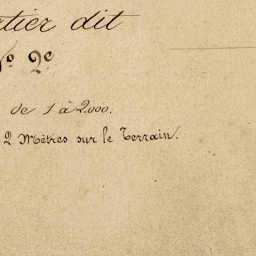 dit
N° 2e
de 1 à 2000.
2 Mètres sur le Terrain.